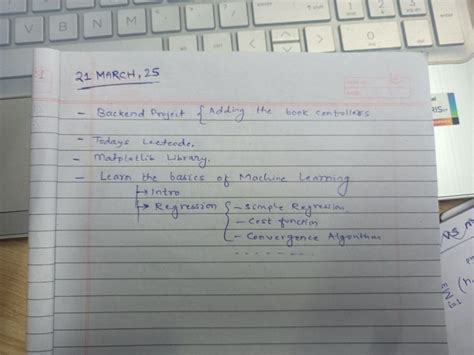 21 MARCH, 25
- Backend Project { Adding the book controllers
- Todays Leetcode.
- Matplotlib Library.
- Learn the basics of Machine Learning
→ Intro
→ Regression { - Simple Regression
- Cost function
- Convergence Algorithm